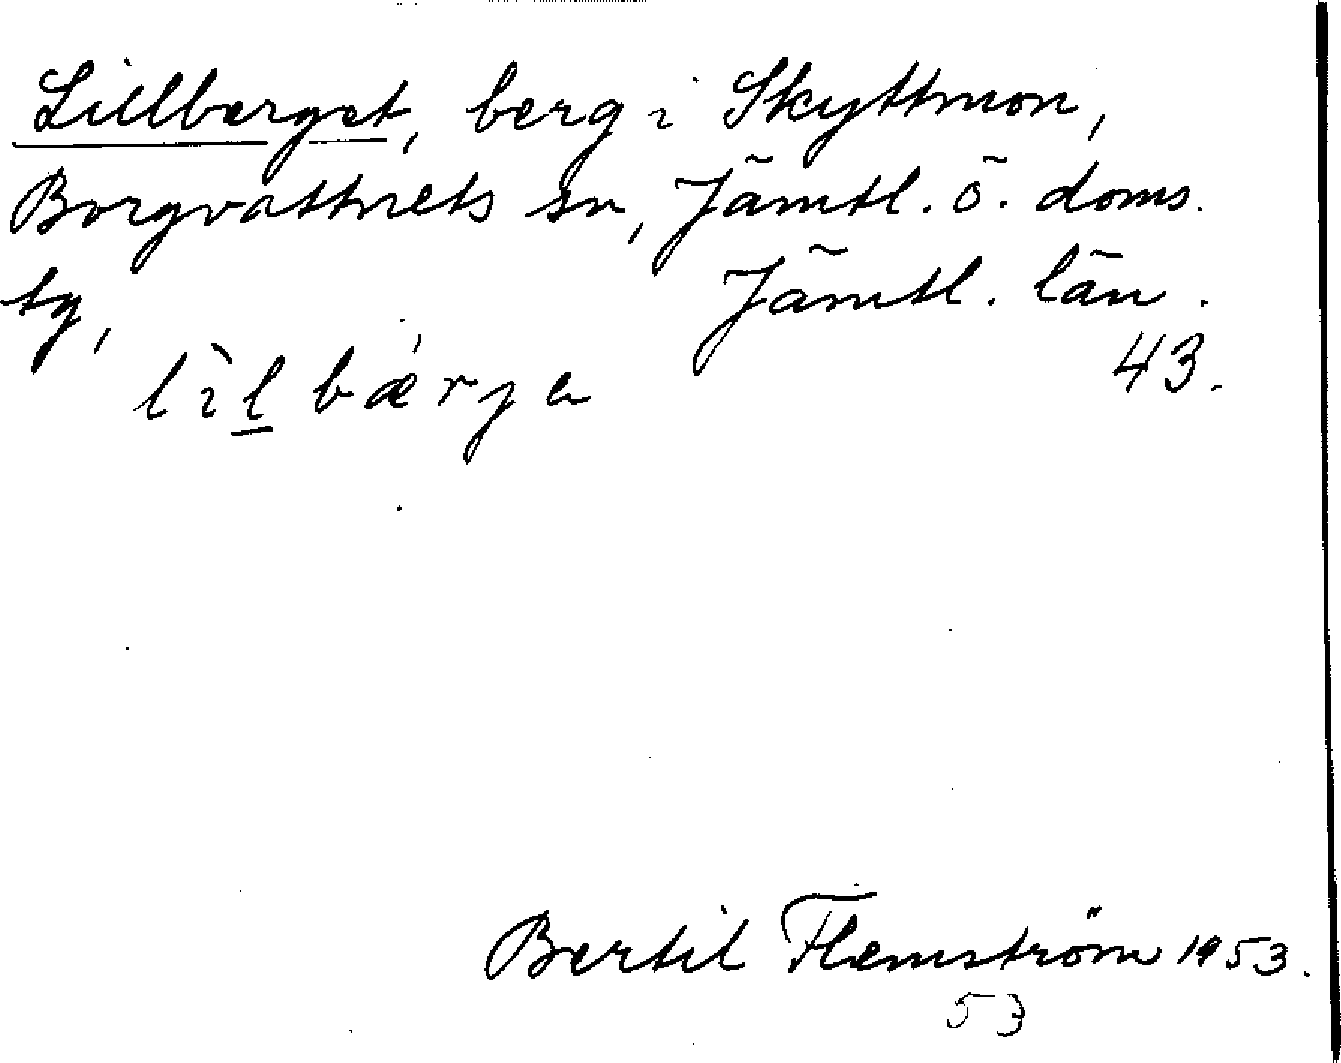 Lillberget, berg i Skyttmon,
Borgvattnets sn, Jämtl. ö. doms.
tg, Jämtl. län.
43.
lìl̲bǽrjɐ
Bertil Flemström 1953.
53